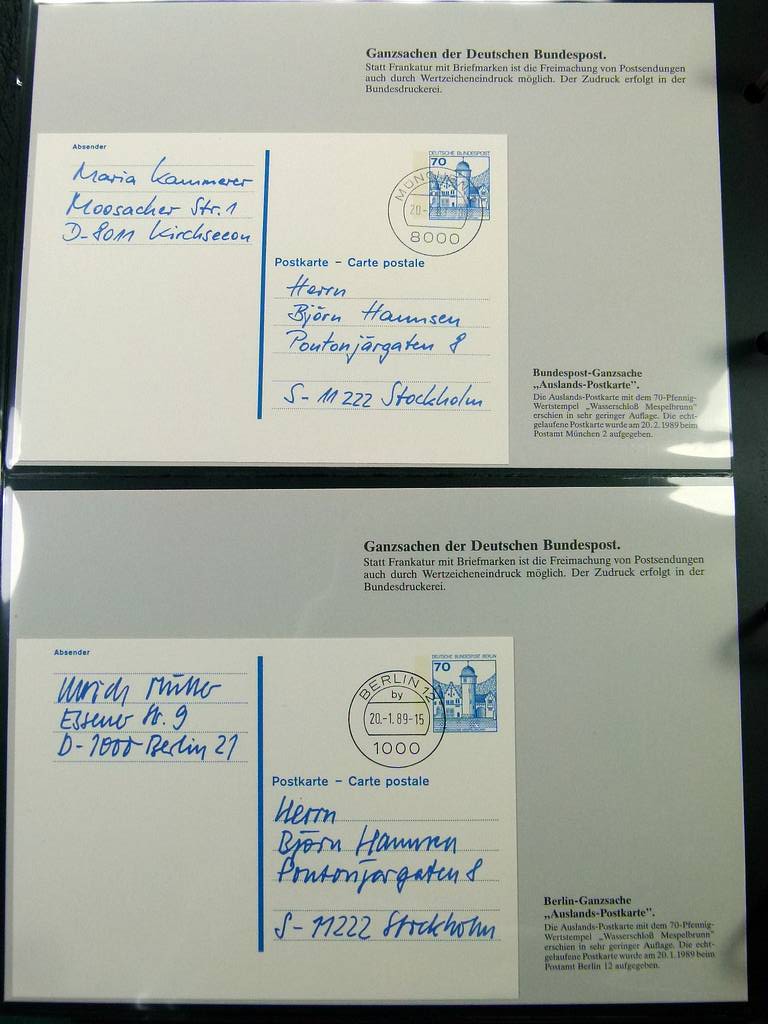 Ganzsachen der Deutschen Bundespost.
Statt Frankatur mit Briefmarken ist die Freimachung von Postsendungen
auch durch Wertzeicheneindruck möglich. Der Zudruck erfolgt in der
Bundesdruckerei.
Absender
Maria Kammerer
Moosacher Str. 1
D-8011 Kirchseeon
DEUTSCHE BUNDESPOST
70
MÜNCHEN
20
8000
Postkarte – Carte postale
Herrn
Björn Hannsen
Pontonjärgaten 8
S-11222 Stockholm
Bundespost-Ganzsache
„Auslands-Postkarte”.
Die Auslands-Postkarte mit dem 70-Pfennig-
Wertstempel „Wasserschloß Mespelbrunn”
erschien in sehr geringer Auflage. Die echt-
gelaufene Postkarte wurde am 20.2.1989 beim
Postamt München 2 aufgegeben.
Ganzsachen der Deutschen Bundespost.
Statt Frankatur mit Briefmarken ist die Freimachung von Postsendungen
auch durch Wertzeicheneindruck möglich. Der Zudruck erfolgt in der
Bundesdruckerei.
Absender
Ulrich Müller
Essener Str. 9
D-1000 Berlin 21
DEUTSCHE BUNDESPOST BERLIN
70
BERLIN 12
by
20.-1.89-15
1000
Postkarte – Carte postale
Herrn
Björn Hannsen
Pontonjärgaten 8
S-11222 Stockholm
Berlin-Ganzsache
„Auslands-Postkarte”.
Die Auslands-Postkarte mit dem 70-Pfennig-
Wertstempel „Wasserschloß Mespelbrunn”
erschien in sehr geringer Auflage. Die echt-
gelaufene Postkarte wurde am 20.1.1989 beim
Postamt Berlin 12 aufgegeben.